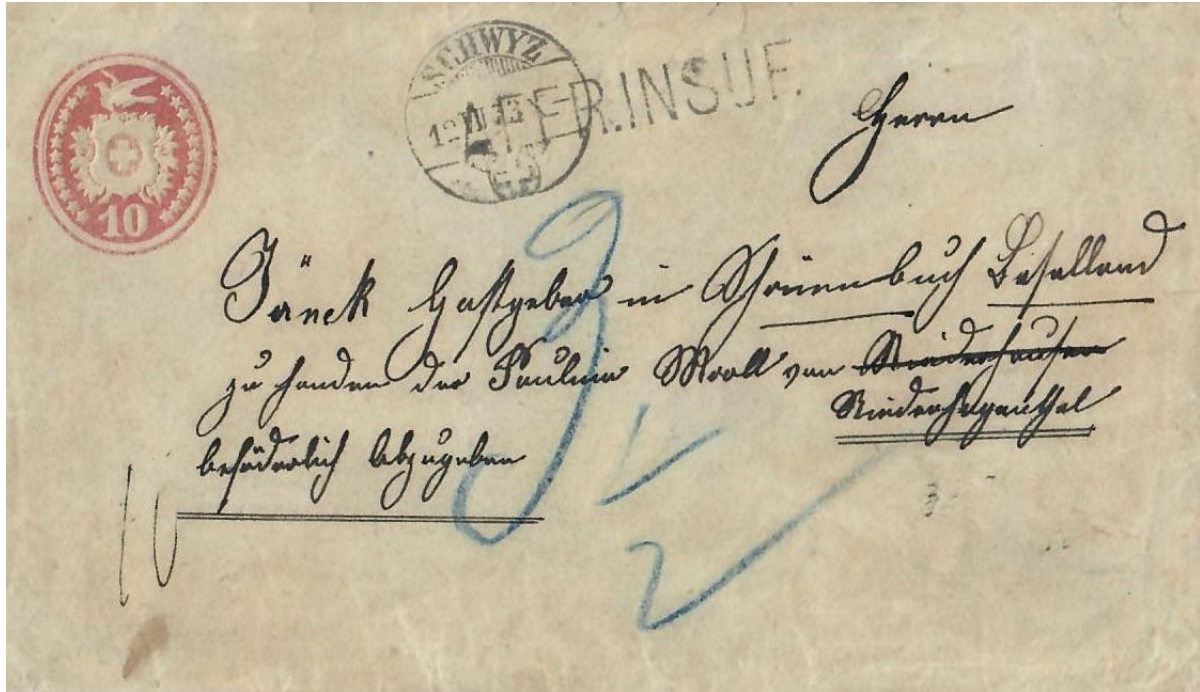 10
SCHWYZ
AFFR.INSUF.
Herrn
Jänck Gastgeber in Schönenbuch Baselland
zu handen der Paulina von Niederhausen
Niederhagenthal
beförderlich Abzugeben
10